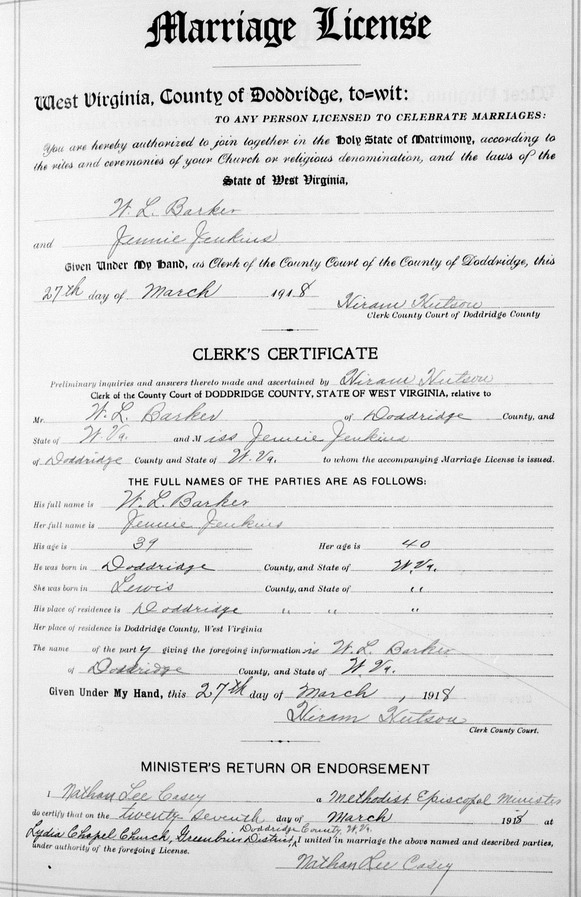 Marriage License
West Virginia, County of Doddridge, to=wit:
TO ANY PERSON LICENSED TO CELEBRATE MARRIAGES:
You are hereby authorized to join together in the Holy State of Matrimony, according to
the rites and ceremonies of your Church or religious denomination, and the laws of the
State of West Virginia,
W. L. Barker
and Jennie Jenkins
Given Under My Hand, as Clerk of the County Court of the County of Doddridge, this
27th day of March 1918 Hiram Hutson
Clerk County Court of Doddridge County
CLERK'S CERTIFICATE
Preliminary inquiries and answers thereto made and ascertained by Hiram Hutson
Clerk of the County Court of DODDRIDGE COUNTY, STATE OF WEST VIRGINIA, relative to
Mr. W. L. Barker of Doddridge County, and
State of W. Va. and Miss Jennie Jenkins
of Doddridge County and State of W. Va. to whom the accompanying Marriage License is issued.
THE FULL NAMES OF THE PARTIES ARE AS FOLLOWS:
His full name is W. L. Barker
Her full name is Jennie Jenkins
His age is 39 Her age is 40
He was born in Doddridge County, and State of W. Va.
She was born in Lewis County, and State of " "
His place of residence is Doddridge " " "
Her place of residence is Doddridge County, West Virginia
The name of the party giving the foregoing information is W. L. Barker
of Doddridge County, and State of W. Va.
Given Under My Hand, this 27th day of March, 1918
Hiram Hutson
Clerk County Court.
MINISTER'S RETURN OR ENDORSEMENT
I Nathan Lee Casey a Methodist Episcopal Minister
do certify that on the twenty seventh day of March 1918 at
Doddridge County, W. Va.
Lydia Chapel Church, Greenbrier District, I united in marriage the above named and described parties,
under authority of the foregoing License.
Nathan Lee Casey